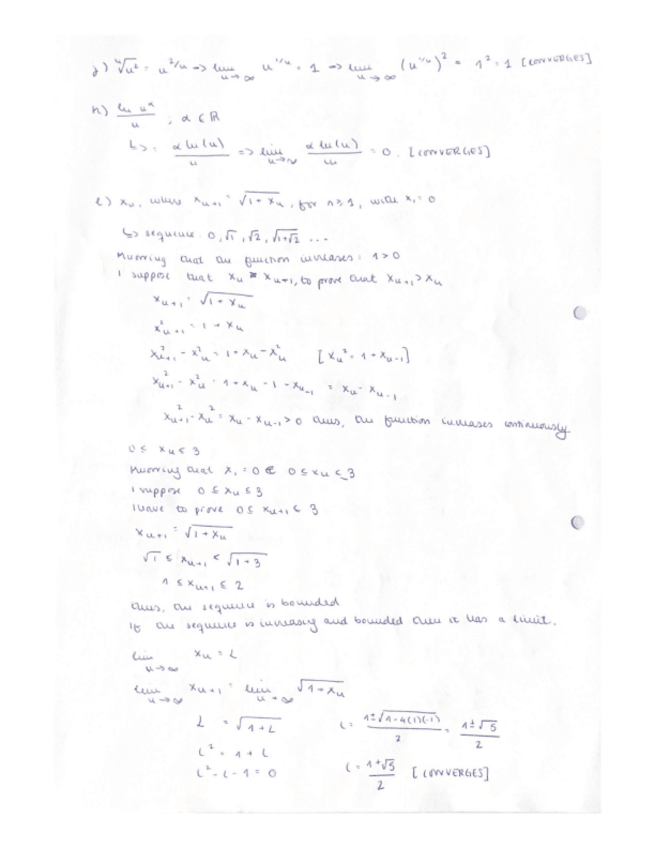 j) ⁿ√n² = n^(2/n) => lim n→∞ n^(1/n) = 1 => lim n→∞ (n^(1/n))² = 1² = 1 [CONVERGES]
k) ln n^α / n ; α ∈ ℝ
↳ = α ln(n) / n => lim n→∞ α ln(n) / n = 0. [CONVERGES]
l) xₙ, where xₙ₊₁ = √(1+xₙ), for n≥1, with x₁ = 0
↳ sequence: 0, √1, √2, √(1+√2) ...
Knowing that the function increases: 1>0
I suppose that xₙ xₙ₋₁, to prove that xₙ₊₁ > xₙ
xₙ₊₁ = √(1+xₙ)
x²ₙ₊₁ = 1 + xₙ
x²ₙ₊₁ - x²ₙ = 1 + xₙ - x²ₙ [xₙ² = 1 + xₙ₋₁]
x²ₙ₊₁ - x²ₙ = 1 + xₙ - 1 - xₙ₋₁ = xₙ - xₙ₋₁
x²ₙ₊₁ - xₙ² = xₙ - xₙ₋₁ > 0 thus, the function increases continuously
0 ≤ xₙ ≤ 3
Knowing that x₁ = 0 0 ≤ xₙ ≤ 3
I suppose 0 ≤ xₙ ≤ 3
I have to prove 0 ≤ xₙ₊₁ ≤ 3
xₙ₊₁ = √(1+xₙ)
√1 ≤ xₙ₊₁ ≤ √(1+3)
1 ≤ xₙ₊₁ ≤ 2
thus, the sequence is bounded
If the sequence is increasing and bounded then it has a limit.
lim n→∞ xₙ = L
lim n→∞ xₙ₊₁ = lim n→∞ √(1+xₙ)
L = √(1+L) L = (1±√(1-4(1)(-1)))/2 = (1±√5)/2
L² = 1 + L
L² - L - 1 = 0 L = (1+√5)/2 [CONVERGES]